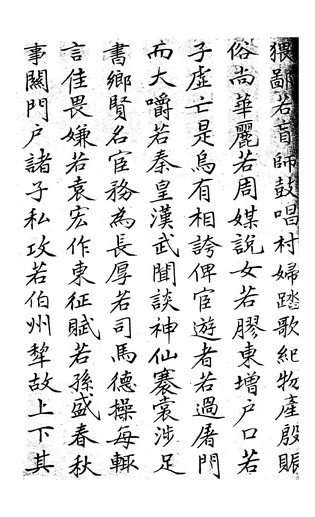 猥鄙若盲師鼓唱村婦踏歌紀物產殷賑
俗尚華麗若周媒說女若膠東增戶口若
子虛亡是烏有相誇俾宦遊者若過屠門
而大嚼若秦皇漢武聞談神仙褰裳涉足
書鄉賢名宦務為長厚若司馬德操每輒
言佳畏嫌若袁宏作東征賦若孫盛春秋
事關門戶諸子私攻若伯州犂故上下其